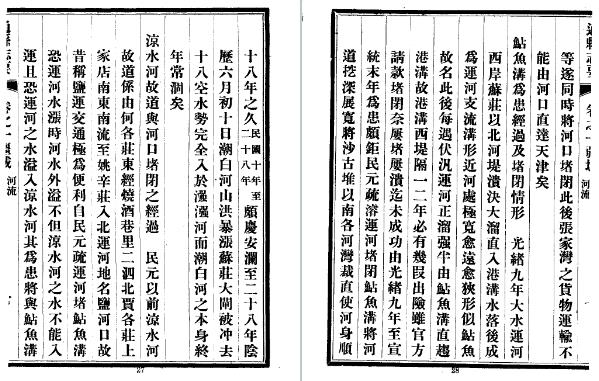 通縣志要 卷之一 疆域 河流
等遂同時將河口堵閉此後張家灣之貨物運輸不
能由河口直達天津矣
鮎魚溝為患經過及堵閉情形 光緒九年大水運河
西岸蘇莊以北河堤潰決大溜直入港溝水落後成
為運河支流溝形近河處極寬愈遠愈狹形似鮎魚
故名此後每遇伏汛運河正溜强半由鮎魚溝直趨
港溝故港溝西堤隔一二年必有幾段出險雖官方
請款堵閉奈屢堵屢潰迄未成功由光緒九年至宣
統末年為患頗鉅民元疏濬運河堵閉鮎魚溝將河
道挖深展寬將沙古堆以南各河灣裁直使河身順
28
十八年之久民國十年至二十八年頗慶安瀾至二十八年陰
歷六月初十日潮白河山洪暴漲蘇莊大閘被冲去
十八空水勢完全入於河而潮白河之本身終
年常涸矣
涼水河故道與河口堵閉之經過 民元以前涼水河
故道係由何各莊東經燒酒巷里二泗北賈各莊上
家店南東南流至姚辛莊入北運河地名鹽河口故
昔稱鹽運交通極為便利自民元疏運河堵鮎魚溝
恐運河水漲時河水外溢不但涼水河之水不能入
運且恐運河之水溢入涼水河其為患將與鮎魚溝
通縣志要 卷之一 疆域 河流
27